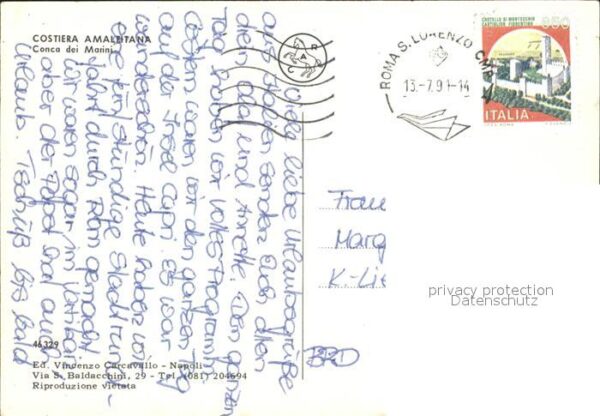 COSTIERA AMALFITANA
Conca dei Marini
ROMA S. LORENZO CMP
13.-7.91-14
CASTELLO DI MONTECCHIO
CASTIGLION FIORENTINO
650
ITALIA
Viele liebe Urlaubsgrüße
aus Italien senden Euch allen
und Annette. Den ganzen
Tag haben wir volles Programm, ge-
stern waren wir den ganzen Tag
auf der Insel Capri. Es war
wunderschön. Heute haben wir
eine fünfstündige Stadtrund-
fahrt durch Rom gemacht
wir waren sogar im Vatikan
aber der Papst war auch
Urlaub. Tschüß bis bald
Frau
Marg
K-Lie
BRD
privacy protection
Datenschutz
46329
Ed. Vincenzo Carcavallo - Napoli
Via S. Baldacchini, 29 - Tel. (081) 204694
Riproduzione vietata